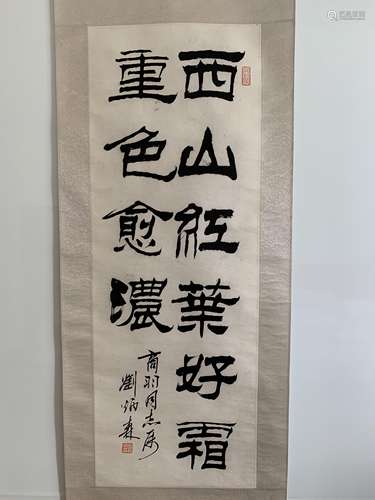 西山红葉好霜
重色愈濃
商羽同志属
劉炳森